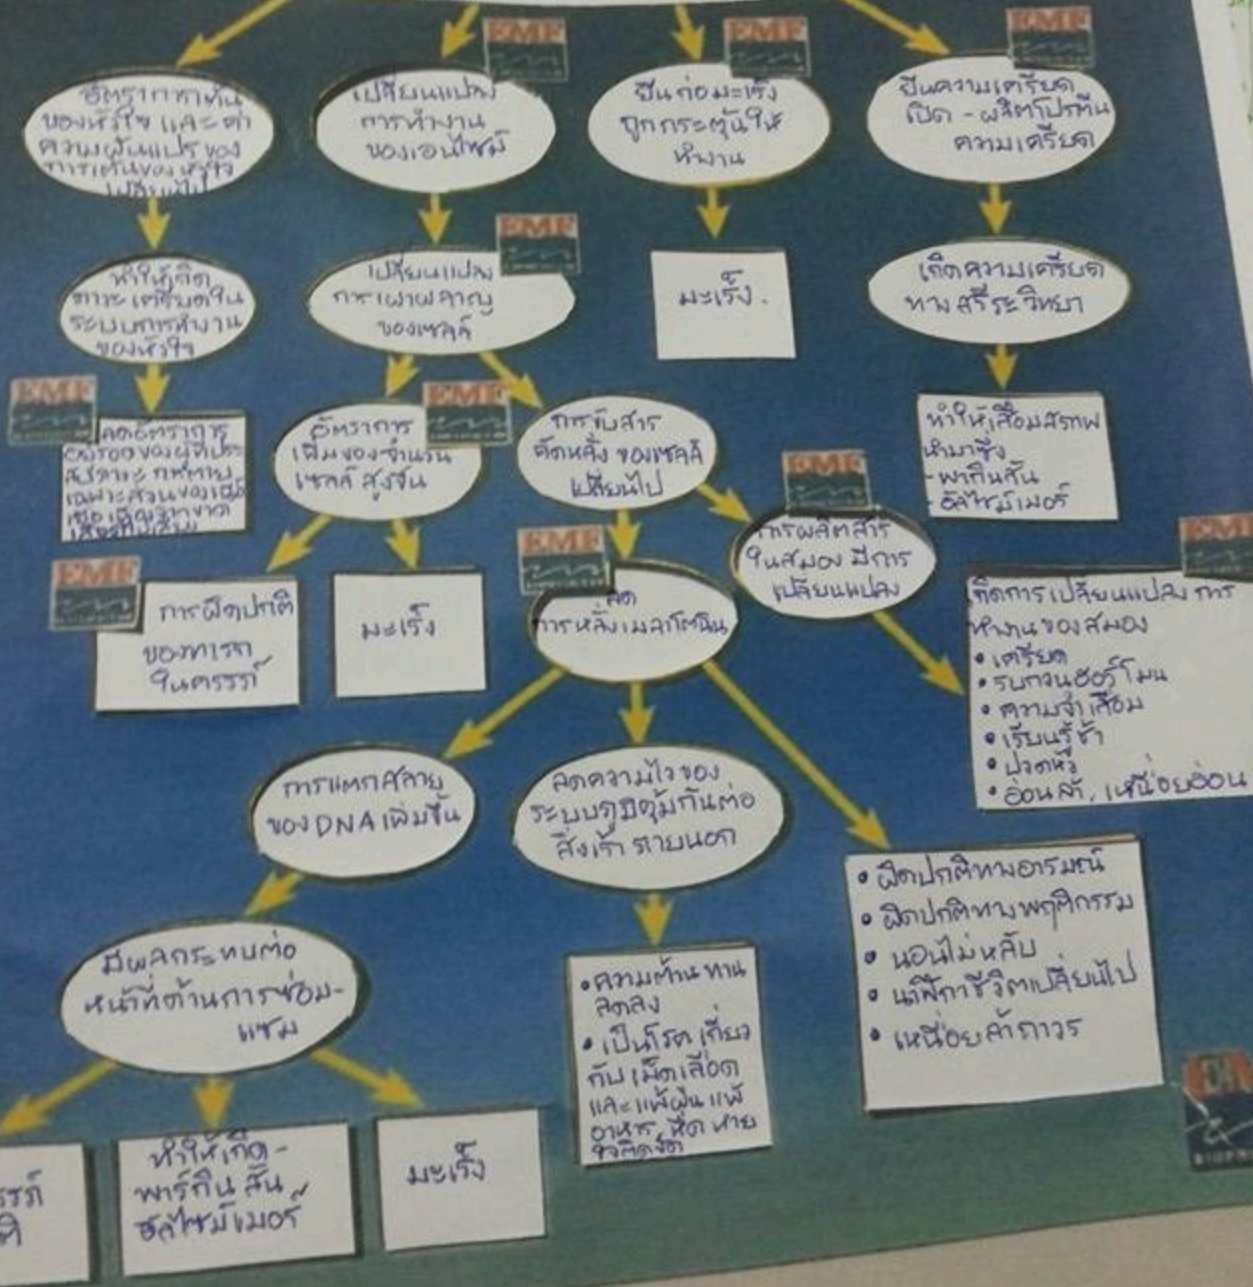 EMF
EMF
EMF
อัตราการเต้น
ของหัวใจ และค่า
ความผันแปรของ
การเต้นของหัวใจ
เปลี่ยนไป
เปลี่ยนแปลง
การทำงาน
ของเอนไซม์
ยีนก่อมะเร็ง
ถูกกระตุ้นให้
ทำงาน
ยีนความเครียด
เปิด - ผลิตโปรตีน
ความเครียด
EMF
ทำให้เกิด
ภาวะเครียดใน
ระบบการทำงาน
ของหัวใจ
เปลี่ยนแปลง
การเผาผลาญ
ของเซลล์
มะเร็ง.
เกิดความเครียด
ทางสรีระวิทยา
EMF
EMF
ลดอัตราการ
อัตราการ
เพิ่มของจำนวน
เซลล์สูงขึ้น
การขับสาร
คัดหลั่งของเซลล์
เปลี่ยนไป
ทำให้เสื่อมสภาพ
นำมาซึ่ง
- พากินสัน
- อัลไซม์เมอร์
EMF
การผลิตสาร
ในสมอง มีการ
เปลี่ยนแปลง
EMF
EMF
EMF
การผิดปกติ
ของทารก
ในครรภ์
มะเร็ง
ลด
การหลั่งเมลาโตนิน
เกิดการเปลี่ยนแปลงการ
ทำงานของสมอง
• เครียด
• รบกวนฮอร์โมน
• ความจำเสื่อม
• เรียนรู้ช้า
• ปวดหัว
• อ่อนล้า, เหนื่อยอ่อน
การแตกสลาย
ของ DNA เพิ่มขึ้น
ลดความไวของ
ระบบภูมิคุ้มกันต่อ
สิ่งเร้าภายนอก
• ผิดปกติทางอารมณ์
• ผิดปกติทางพฤติกรรม
• นอนไม่หลับ
• นาฬิกาชีวิตเปลี่ยนไป
• เหนื่อยล้าถาวร
มีผลกระทบต่อ
หน้าที่ด้านการซ่อม-
แซม
• ความต้านทาน
ลดลง
• เป็นโรคเกี่ยว
กับเม็ดเลือด
และแพ้ฝุ่น แพ้
อาหาร, หืด หาย
ใจติดขัด
ทำให้เกิด-
พาร์กินสัน
อัลไซม์เมอร์
มะเร็ง